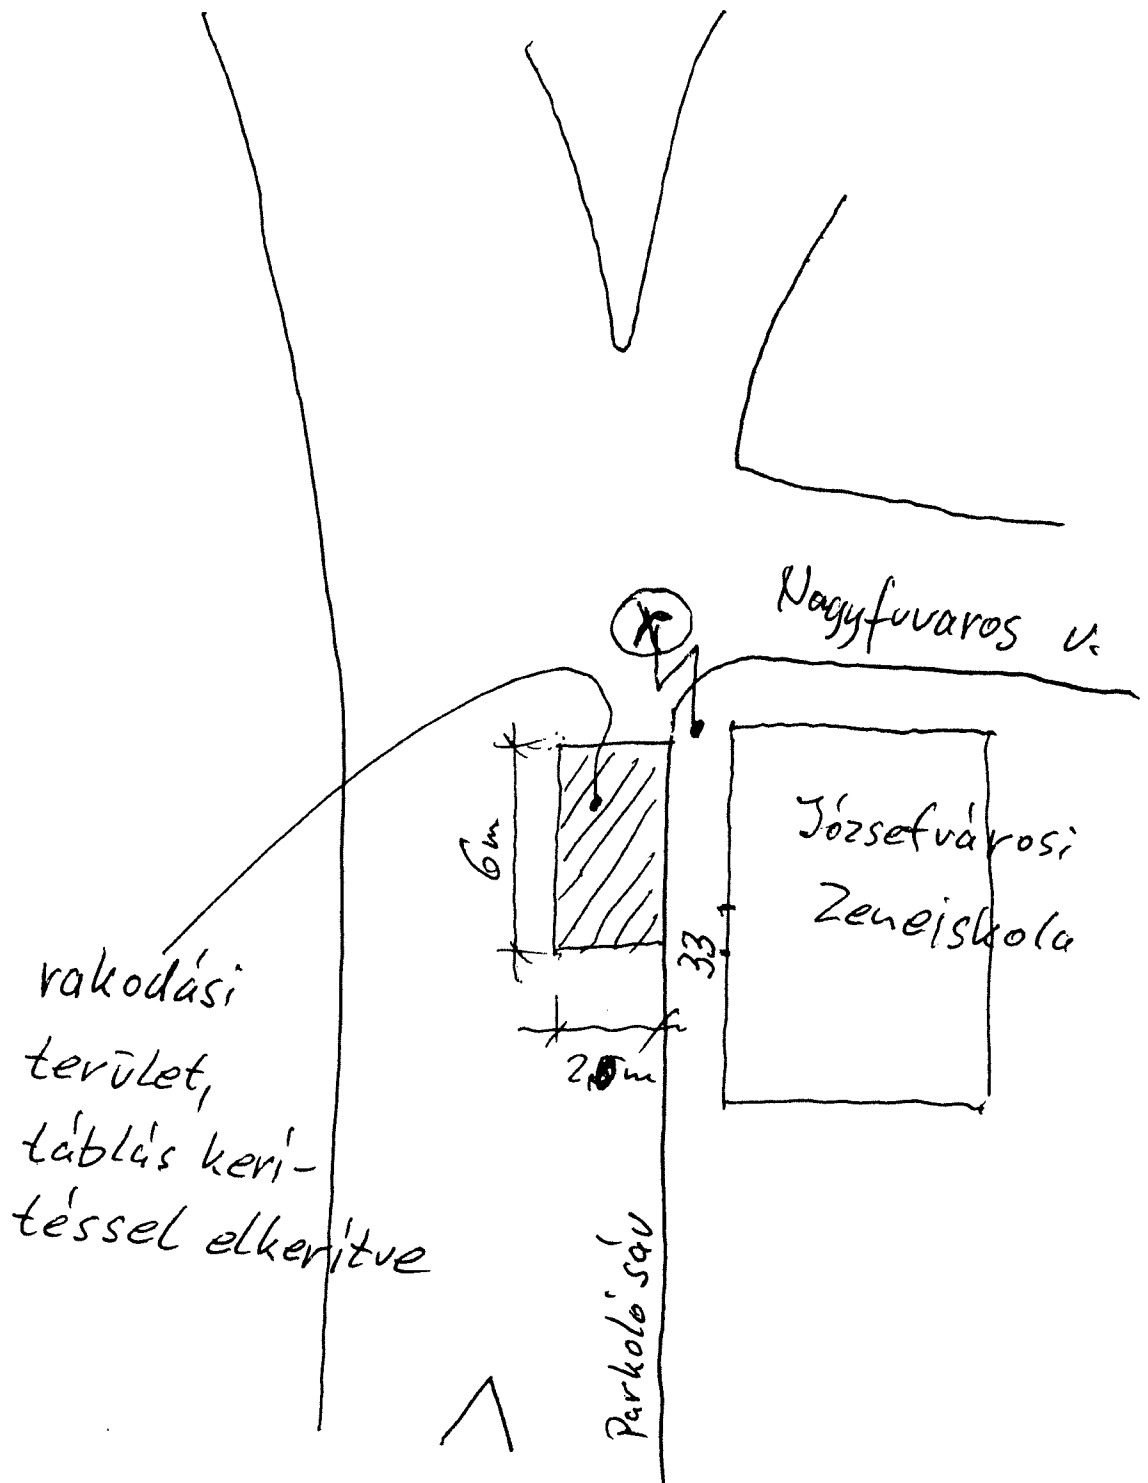 Nagyfuvaros u.
Józsefvárosi
Zeneiskola
6m
33
rakodási
terület,
táblás kerí-
téssel elkerítve
Parkoló sáv